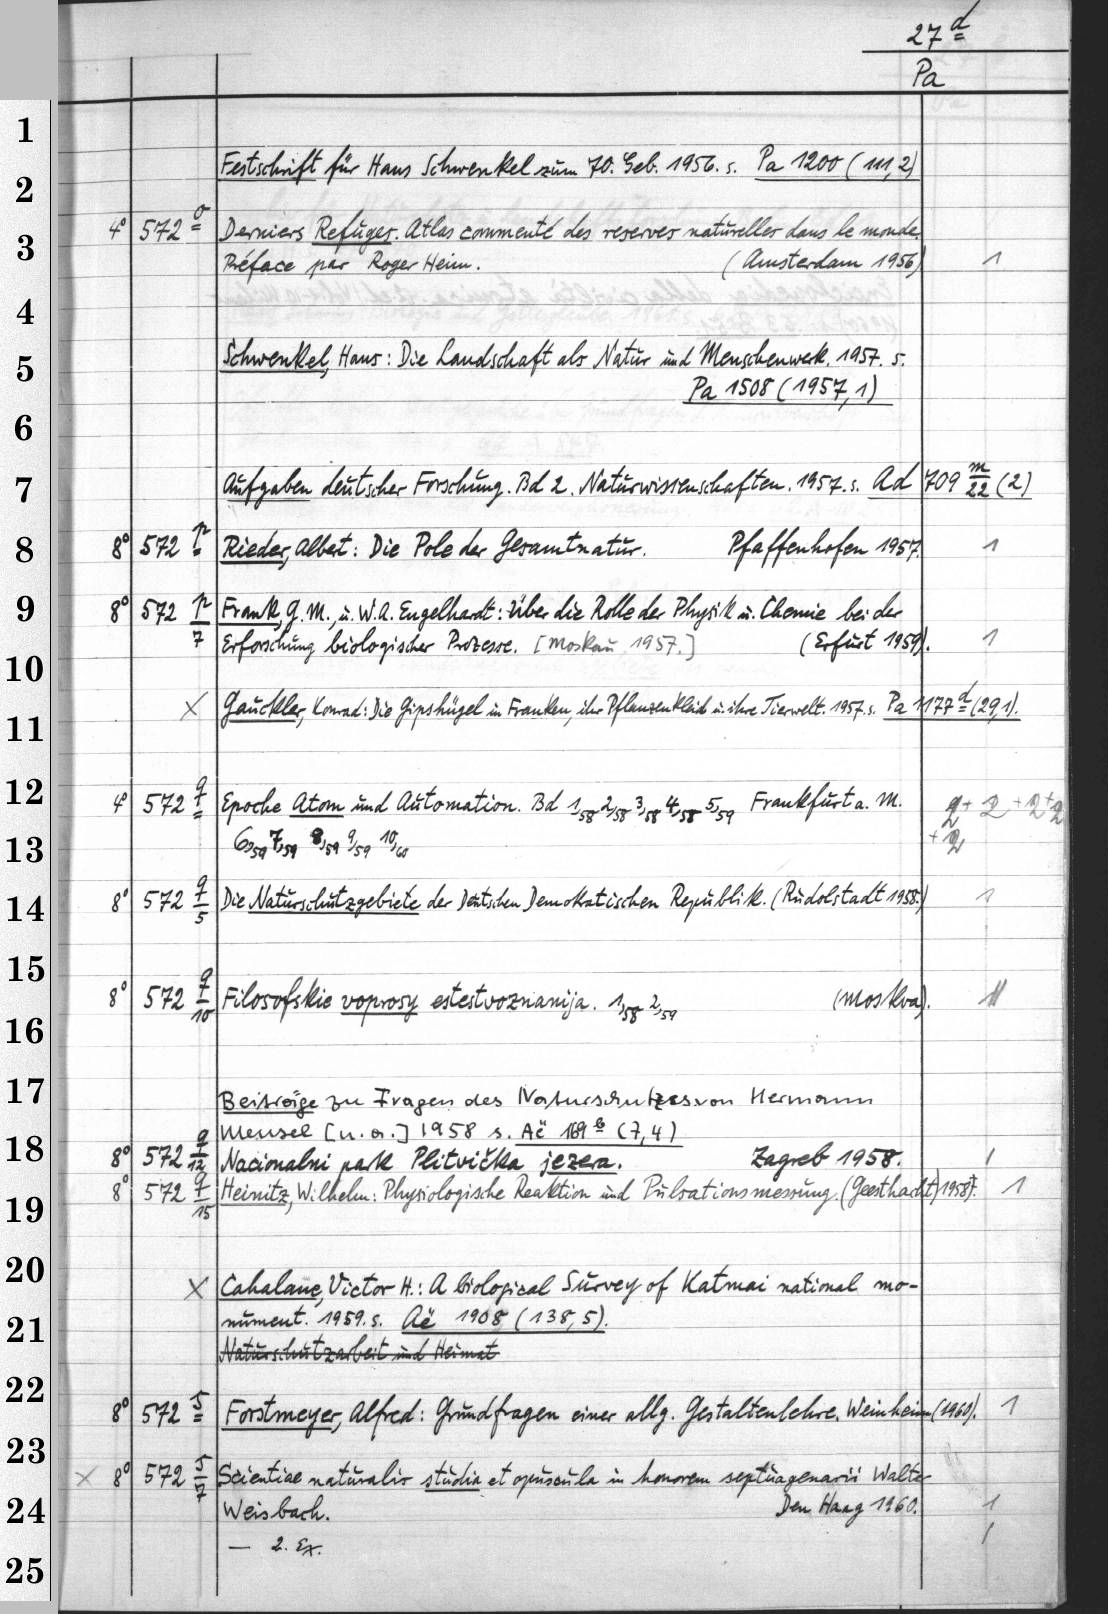 27 d
Pa
1
Festschrift für Hans Schwenkel zum 70. Geb. 1956. s. Pa 1200 (111,2)
2
4° 572 o Derniers Refuges. Atlas commenté des reserves naturelles dans le monde.
3
Préface par Roger Heim. (Amsterdam 1956) 1
4
Schwenkel, Hans: Die Landschaft als Natur und Menschenwerk. 1957. s.
5
Pa 1508 (1957,1)
6
Aufgaben deutscher Forschung. Bd 2. Naturwissenschaften. 1957. s. Ad 709 m/22 (2)
7
8° 572 p Rieder, Albert: Die Pole der Gesamtnatur. Pfaffenhofen 1957. 1
8
8° 572 p/7 Frank, G. M., u. W. A. Engelhardt: Über die Rolle der Physik u. Chemie bei der
9
Erforschung biologischer Prozesse. [Moskau 1957.] (Erfurt 1959). 1
10
x Gauckler, Konrad: Die Gipshügel in Franken, ihr Pflanzenkleid u. ihre Tierwelt. 1957. s. Pa 1177 d (29,1).
11
12
4° 572 q Epoche Atom und Automation. Bd 1,58 2,58 3,58 4,58 5,59 Frankfurt a. M. 2 + 2 + 2 + 2
6,59 7,59 8,59 9,59 10,60 + 2
13
8° 572 q/5 Die Naturschutzgebiete der Deutschen Demokratischen Republik. (Rudolstadt 1958.) 1
14
15
8° 572 q/10 Filosofskie voprosy estestvoznanija. 1,58 2,59 (Moskva). 11
16
17
Beiträge zu Fragen des Naturschutzes von Hermann
Meusel [u. a.] 1958 s. Aë 169 b (7,4)
18
8° 572 q/12 Nacionalni park Plitvička jezera. Zagreb 1958. 1
8° 572 q/15 Heinitz, Wilhelm: Physiologische Reaktion und Pulsationsmessung. (Geesthacht) 1958. 1
19
20
x Cahalane, Victor H.: A biological Survey of Katmai national mo-
nument. 1959. s. Aë 1908 (138,5).
21
Naturschutzarbeit und Heimat
22
8° 572 s Forstmeyer, Alfred: Grundfragen einer allg. Gestaltenlehre. Weinheim (1960). 1
23
x 8° 572 s/7 Scientiae naturalis studia et opuscula in honorem septuagenarii Walter
24
Weisbach. Den Haag 1960. 1
— 2. Ex. 1
25